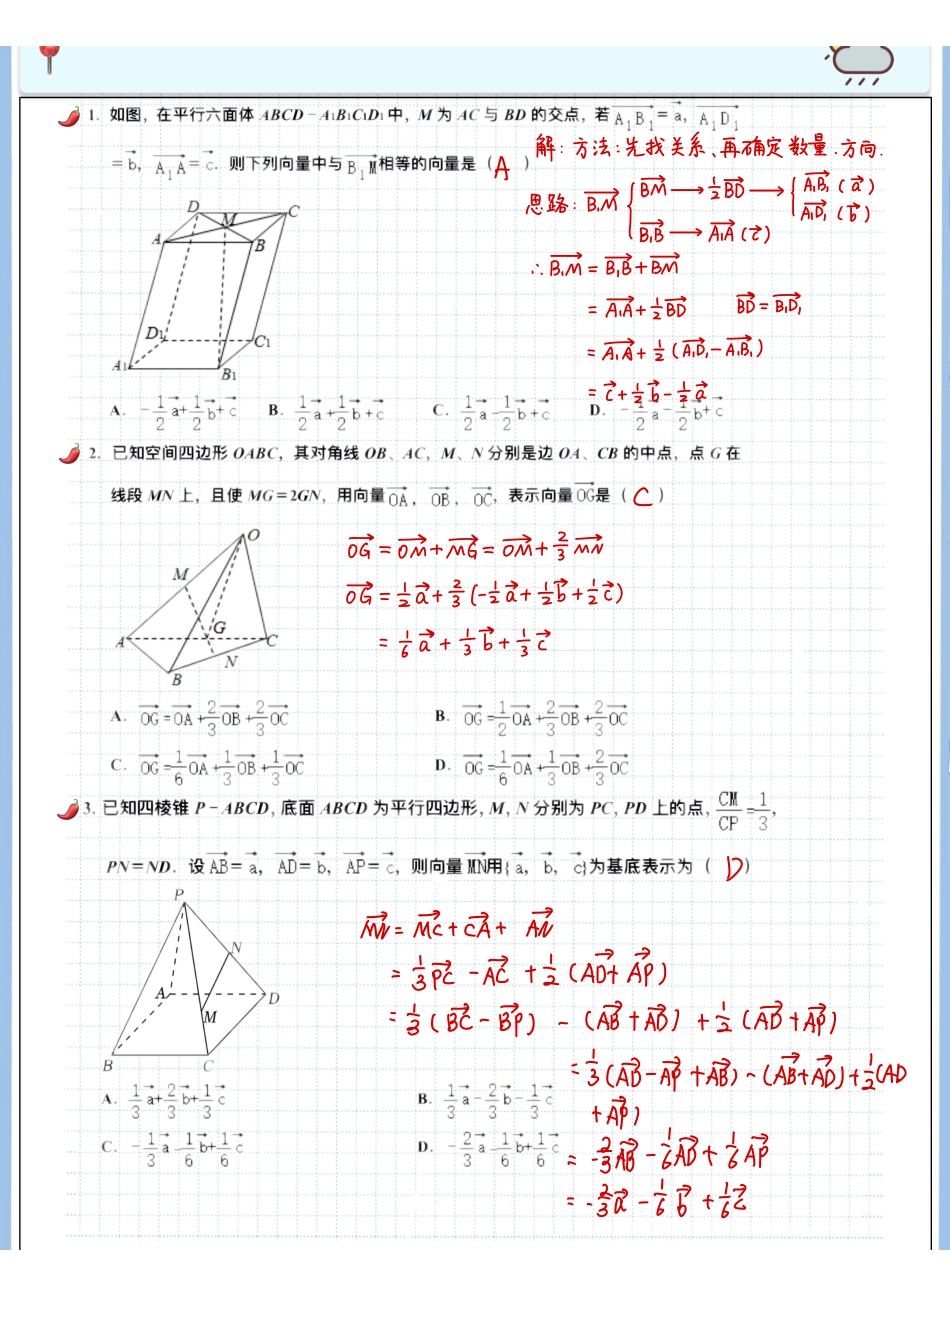 1. 如图，在平行六面体 ABCD－A1B1C1D1 中，M 为 AC 与 BD 的交点，若 $\overrightarrow{A_1B_1}=\vec{a}$，$\overrightarrow{A_1D_1}$
$=\vec{b}$，$\overrightarrow{A_1A}=\vec{c}$. 则下列向量中与 $\overrightarrow{B_1M}$ 相等的向量是（ A ）
解：方法：先找关系、再确定数量.方向.
思路：$\overrightarrow{B_1M}$ { $\overrightarrow{BM}$ → $\frac{1}{2}\overrightarrow{BD}$ → { $\overrightarrow{A_1B_1}$ ($\vec{a}$)
$\overrightarrow{A_1D_1}$ ($\vec{b}$)
$\overrightarrow{B_1B}$ → $\overrightarrow{A_1A}$ ($\vec{c}$)
∴ $\overrightarrow{B_1M}=\overrightarrow{B_1B}+\overrightarrow{BM}$
$=\overrightarrow{A_1A}+\frac{1}{2}\overrightarrow{BD}$ $\overrightarrow{BD}=\overrightarrow{B_1D_1}$
$=\overrightarrow{A_1A}+\frac{1}{2}(\overrightarrow{A_1D_1}-\overrightarrow{A_1B_1})$
$=\vec{c}+\frac{1}{2}\vec{b}-\frac{1}{2}\vec{a}$
D C M A B D1 C1 A1 B1
A. $-\frac{1}{2}\vec{a}+\frac{1}{2}\vec{b}+\vec{c}$ B. $\frac{1}{2}\vec{a}+\frac{1}{2}\vec{b}+\vec{c}$ C. $\frac{1}{2}\vec{a}-\frac{1}{2}\vec{b}+\vec{c}$ D. $-\frac{1}{2}\vec{a}-\frac{1}{2}\vec{b}+\vec{c}$
2. 已知空间四边形 OABC，其对角线 OB、AC，M、N 分别是边 OA、CB 的中点，点 G 在
线段 MN 上，且使 MG＝2GN，用向量 $\overrightarrow{OA}$，$\overrightarrow{OB}$，$\overrightarrow{OC}$，表示向量 $\overrightarrow{OG}$ 是（ C ）
O M A G C N B
$\overrightarrow{OG}=\overrightarrow{OM}+\overrightarrow{MG}=\overrightarrow{OM}+\frac{2}{3}\overrightarrow{MN}$
$\overrightarrow{OG}=\frac{1}{2}\vec{a}+\frac{2}{3}(-\frac{1}{2}\vec{a}+\frac{1}{2}\vec{b}+\frac{1}{2}\vec{c})$
$=\frac{1}{6}\vec{a}+\frac{1}{3}\vec{b}+\frac{1}{3}\vec{c}$
A. $\overrightarrow{OG}=\overrightarrow{OA}+\frac{2}{3}\overrightarrow{OB}+\frac{2}{3}\overrightarrow{OC}$ B. $\overrightarrow{OG}=\frac{1}{2}\overrightarrow{OA}+\frac{2}{3}\overrightarrow{OB}+\frac{2}{3}\overrightarrow{OC}$
C. $\overrightarrow{OG}=\frac{1}{6}\overrightarrow{OA}+\frac{1}{3}\overrightarrow{OB}+\frac{1}{3}\overrightarrow{OC}$ D. $\overrightarrow{OG}=\frac{1}{6}\overrightarrow{OA}+\frac{1}{3}\overrightarrow{OB}+\frac{2}{3}\overrightarrow{OC}$
3. 已知四棱锥 P－ABCD，底面 ABCD 为平行四边形，M，N 分别为 PC，PD 上的点，$\frac{CM}{CP}=\frac{1}{3}$，
PN＝ND. 设 $\overrightarrow{AB}=\vec{a}$，$\overrightarrow{AD}=\vec{b}$，$\overrightarrow{AP}=\vec{c}$，则向量 $\overrightarrow{MN}$ 用{$\vec{a}$，$\vec{b}$，$\vec{c}$}为基底表示为（ D ）
P N A D M B C
$\overrightarrow{MN}=\overrightarrow{MC}+\overrightarrow{CA}+\overrightarrow{AN}$
$=\frac{1}{3}\overrightarrow{PC}-\overrightarrow{AC}+\frac{1}{2}(\overrightarrow{AD}+\overrightarrow{AP})$
$=\frac{1}{3}(\overrightarrow{BC}-\overrightarrow{BP})-(\overrightarrow{AB}+\overrightarrow{AD})+\frac{1}{2}(\overrightarrow{AD}+\overrightarrow{AP})$
$=\frac{1}{3}(\overrightarrow{AD}-\overrightarrow{AP}+\overrightarrow{AB})-(\overrightarrow{AB}+\overrightarrow{AD})+\frac{1}{2}(AD$
$+\overrightarrow{AP})$
$=-\frac{2}{3}\overrightarrow{AB}-\frac{1}{6}\overrightarrow{AD}+\frac{1}{6}\overrightarrow{AP}$
$=-\frac{2}{3}\vec{a}-\frac{1}{6}\vec{b}+\frac{1}{6}\vec{c}$
A. $\frac{1}{3}\vec{a}+\frac{2}{3}\vec{b}+\frac{1}{3}\vec{c}$ B. $\frac{1}{3}\vec{a}-\frac{2}{3}\vec{b}-\frac{1}{3}\vec{c}$
C. $-\frac{1}{3}\vec{a}-\frac{1}{6}\vec{b}+\frac{1}{6}\vec{c}$ D. $-\frac{2}{3}\vec{a}-\frac{1}{6}\vec{b}+\frac{1}{6}\vec{c}$